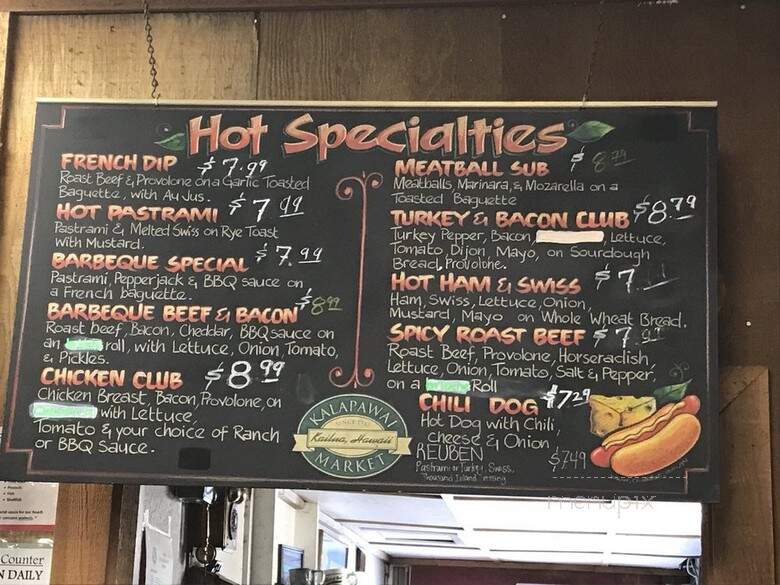 Hot Specialties
FRENCH DIP $7.99
Roast Beef & Provolone on a Garlic Toasted
Baguette, with Au Jus.
HOT PASTRAMI $7
Pastrami & Melted Swiss on Rye Toast
with Mustard.
BARBEQUE SPECIAL $7.99
Pastrami, Pepperjack & BBQ sauce on
a French baguette.
BARBEQUE BEEF & BACON $8.99
Roast beef, Bacon, Cheddar, BBQ sauce on
an roll, with Lettuce, Onion, Tomato,
& Pickles.
CHICKEN CLUB $8.99
Chicken Breast, Bacon, Provolone, on
with Lettuce,
Tomato & your choice of Ranch
or BBQ Sauce.
MEATBALL SUB $8.79
Meatballs, Marinara, & Mozarella on a
Toasted Baguette
TURKEY & BACON CLUB $8.79
Turkey Pepper, Bacon, Lettuce,
Tomato, Dijon, Mayo, on Sourdough
Bread, Provolone.
HOT HAM & SWISS $7
Ham, Swiss, Lettuce, Onion,
Mustard, Mayo on Whole Wheat Bread.
SPICY ROAST BEEF $7
Roast Beef, Provolone, Horseradish,
Lettuce, Onion, Tomato, Salt & Pepper,
on a Roll
CHILI DOG $7.29
Hot Dog with Chili,
cheese & Onion
REUBEN $7.49
Pastrami or Turkey, Swiss,
Thousand Island
KALAPAWAI
Kailua, Hawaii
MARKET
menupix
Counter
N DAILY